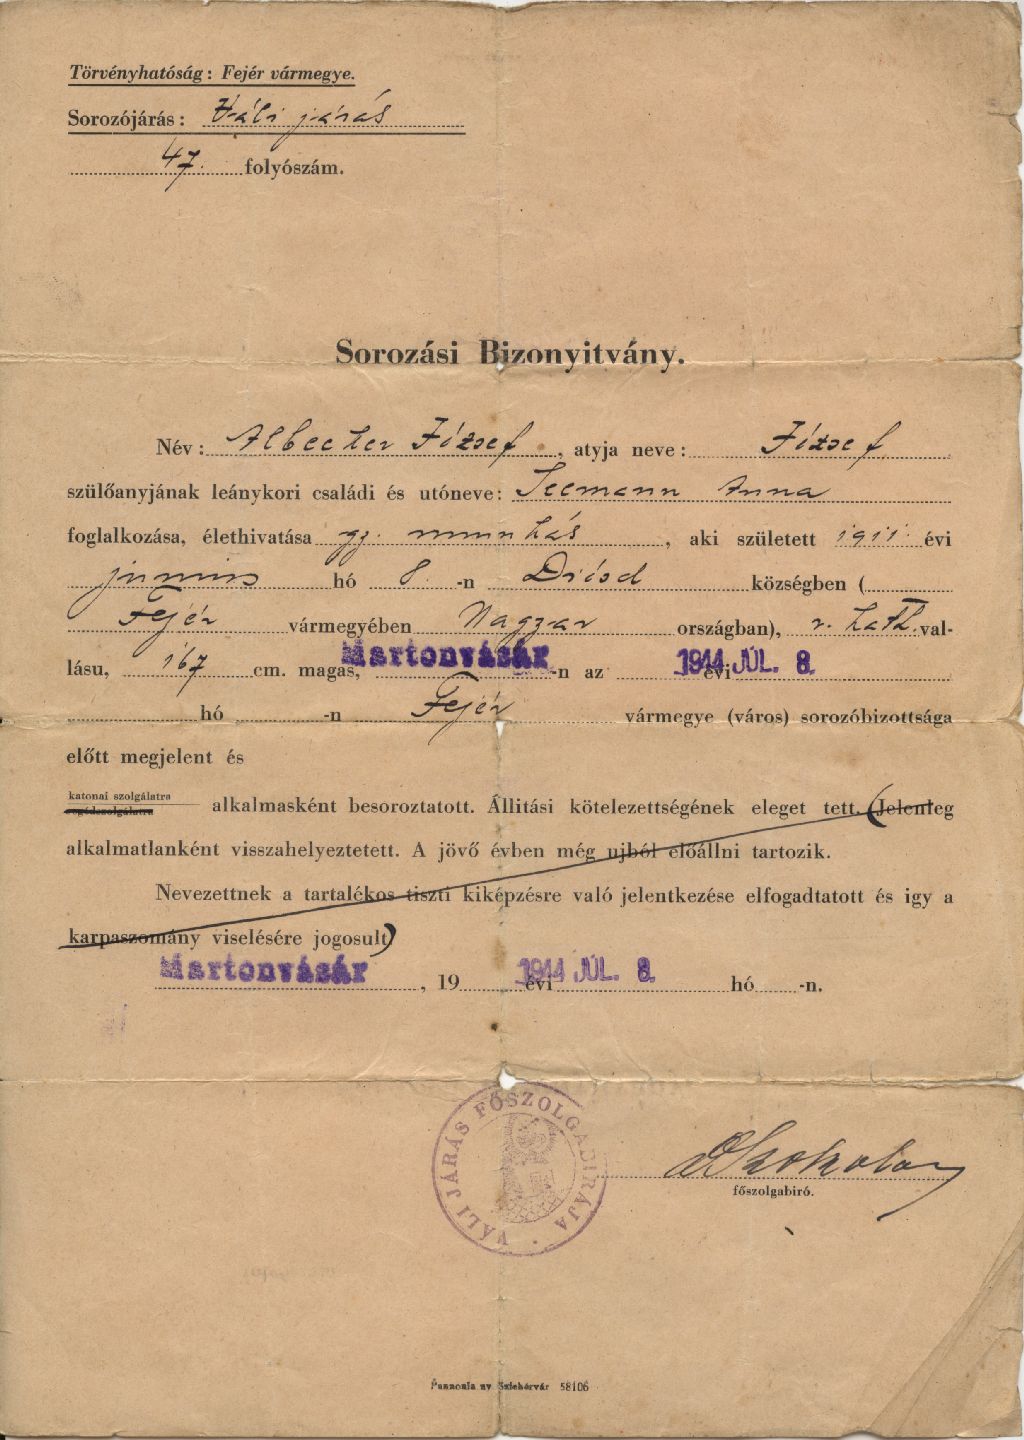 Törvényhatóság: Fejér vármegye.
Sorozójárás: Váli járás
47. folyószám.
Sorozási Bizonyitvány.
Név: Albecker József, atyja neve: József
szülőanyjának leánykori családi és utóneve: Seemann Anna
foglalkozása, élethivatása gy. munkás, aki született 1911. évi
junius hó 8. -n Diósd községben (
Fejér vármegyében Magyar országban), r. kath. val-
lásu, 167 cm. magas, Martonvásár -n az 1944 JÚL. 8. évi
hó -n Fejér vármegye (város) sorozóbizottsága
előtt megjelent és
katonai szolgálatra
alkalmasként besoroztatott. Állitási kötelezettségének eleget tett. (Jelenleg
alkalmatlanként visszahelyeztetett. A jövő évben még ujból előállni tartozik.
Nevezettnek a tartalékos tiszti kiképzésre való jelentkezése elfogadtatott és igy a
karpaszomány viselésére jogosult)
Martonvásár, 19 1944 JÚL. 8. évi hó -n.
VÁLI JÁRÁS FŐSZOLGABIRÁJA
főszolgabiró.
Pannonia ny. Szfehérvár 58106